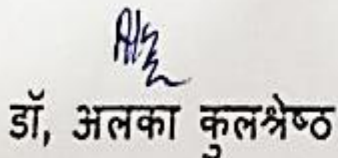 डॉ, अलका कुलश्रेष्ठ